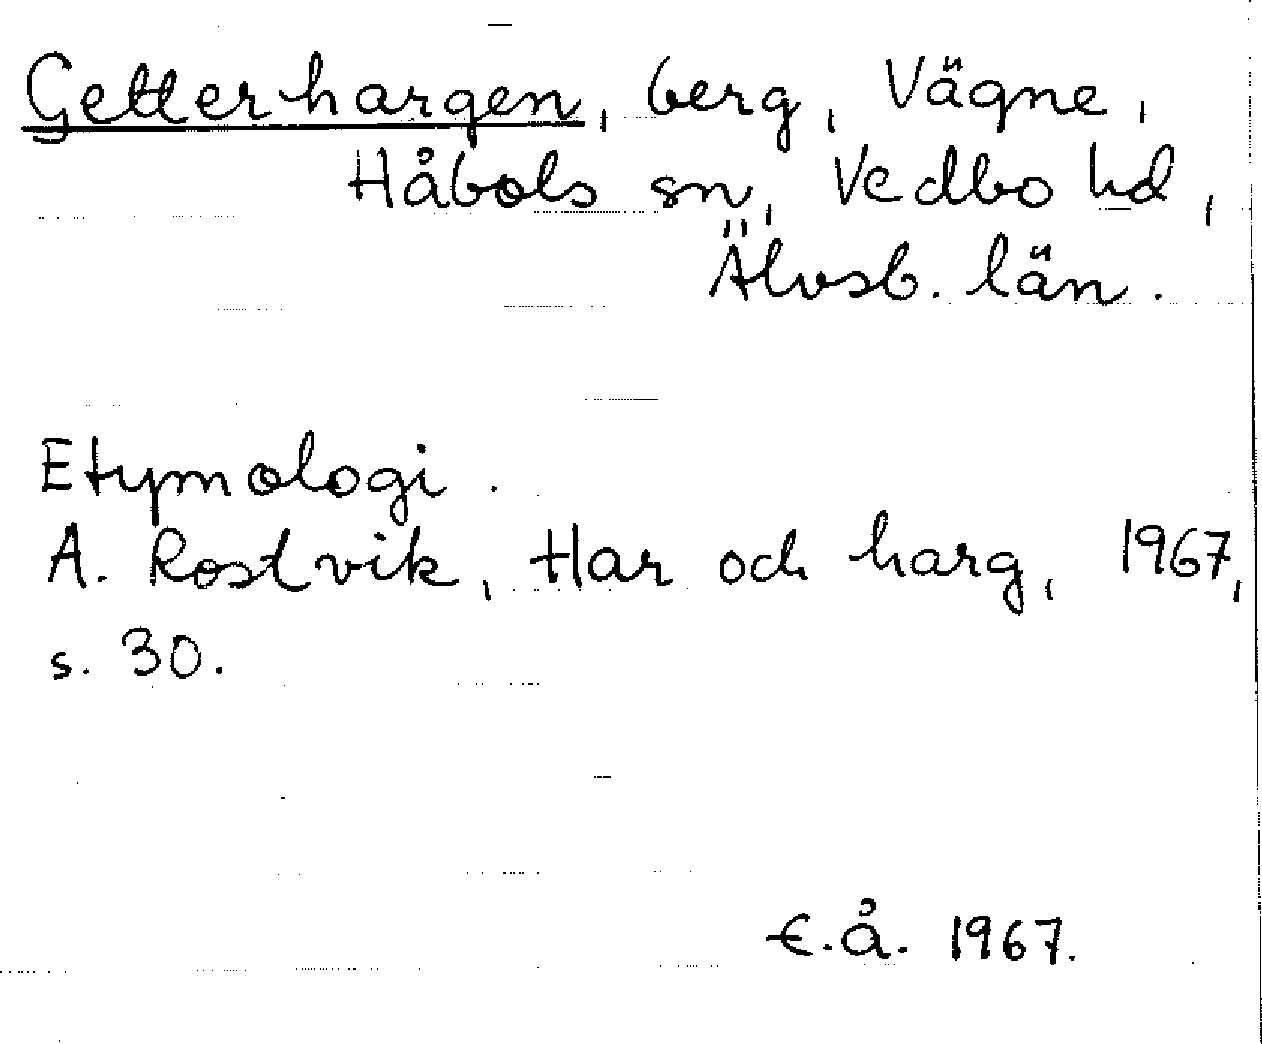 Getterhargen, berg, Vägne,
Håbols sn, Vedbo hd,
Älvsb. län.
Etymologi.
A. Rostvik, Har och harg, 1967,
s. 30.
E.Å. 1967.